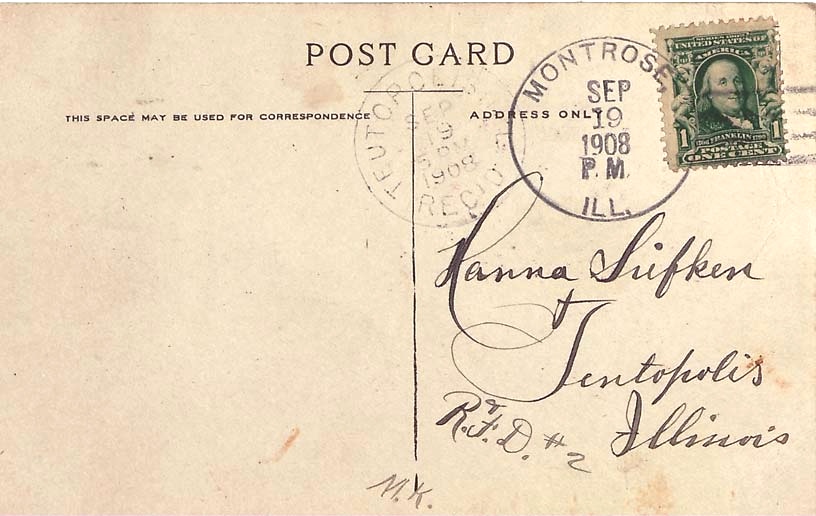 POST CARD
THIS SPACE MAY BE USED FOR CORRESPONDENCE
ADDRESS ONLY
TEUTOPOLIS
SEP
19
1908
REC'D
MONTROSE,
SEP
19
1908
P.M.
ILL.
SERIES 1902
UNITED STATES OF
AMERICA
1 1
FRANKLIN
POSTAGE
ONE CENT
Hanna Süfken
Teutopolis
R.F.D. #2 Illinois
M.K.